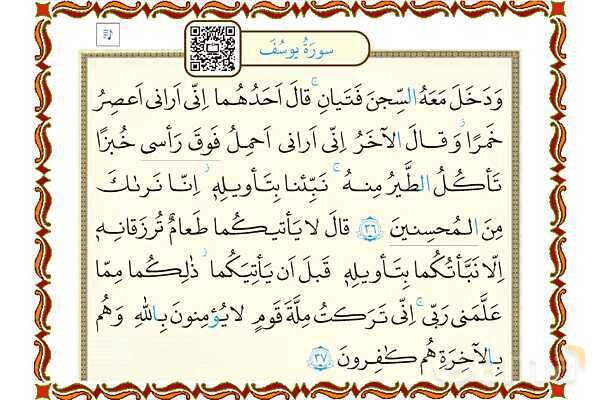 سورَةُ يوسُفَ
وَ دَخَلَ مَعَهُ السِّجنَ فَتَيانِ ۚ قالَ اَحَدُهُما اِنّی اَرانی اَعصِرُ
خَمرًا ۖ وَ قالَ الآخَرُ اِنّی اَرانی اَحمِلُ فَوقَ رَأسی خُبزًا
تَأكُلُ الطَّیرُ مِنهُ ۚ نَبِّئنا بِتَأویلِهٖ ۖ اِنّا نَرىٰكَ
مِنَ المُحسِنینَ ﴿٣٦﴾ قالَ لا یَأتیكُما طَعامٌ تُرزَقانِهٖ
اِلّا نَبَّأتُكُما بِتَأویلِهٖ قَبلَ اَن یَأتِیَكُما ۚ ذٰلِكُما مِمّا
عَلَّمَنی رَبّی ۚ اِنّی تَرَكتُ مِلَّةَ قَومٍ لا یُؤمِنونَ بِاللهِ وَ هُم
بِالآخِرَةِ هُم كٰفِرونَ ﴿٣٧﴾